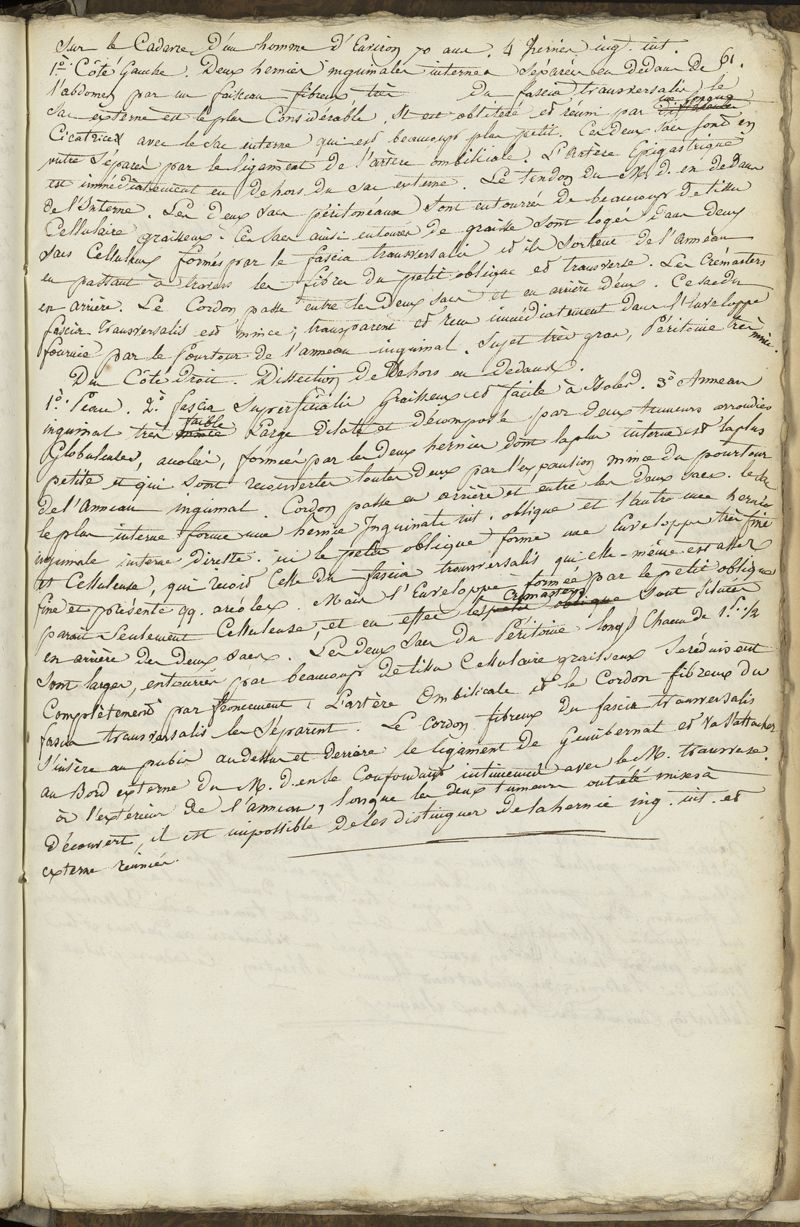 Sur le Cadavre d'un homme d'Environ 70 ans. 4 hernies ing. int.
61.
1º. Côté Gauche. Deux hernies inguinales internes séparées en dedans de
l'abdomen par un faisceau fibreux très du fascia transversalis le
sac externe est le plus Considérable, Il est oblitéré et réuni par
Cicatrices avec le sac interne qui est beaucoup plus petit. Ces deux sacs sont en
outre séparés par le ligament de l'artère ombilicale. L'artère Epigastrique
est immédiatement en dehors du sac externe. Le tendon du M. d. en dedans
de l'Interne. Les deux sacs péritonéaux sont entourrés de beaucoup de tissu
Cellulaire graisseux. Ces sacs ainsi entourés de graisse sont logés dans deux
sacs Celluleux formés par le fascia transversalis et ils sortent de l'anneau
en passant à travers les fibres du petit oblique et transverse. Les Crémasters
en arrière. Le Cordon passe entre les deux sacs et en arrière d'eux. Ce sac du
fascia transversalis est mince, transparent et reçu immédiatement dans l'Enveloppe
fournie par le pourtour de l'anneau inguinal. Sujet très gras, Péritoine très mince.
Du Côté Droit. Dissection de Dehors en dedans.
1º. Peau. 2º. fascia Superficialis Graisseux et facile à Isoler. 3º Anneau
inguinal très faible large Dilaté et décomposé par deux tumeurs arrondies
Globuleuses, accolées, formées par les deux hernies dont la plus interne est la plus
petite et qui sont recouvertes toutes deux par l'expansion mince du pourtour
de l'Anneau inguinal. Cordon passe en arrière et entre les deux sacs. le sac
le plus interne forme une hernie Inguinale int. oblique et l'autre une hernie
inguinale interne directe. ici le petit oblique forme une Enveloppe très fine
et Celluleuse, qui reçoit celle du fascia transversalis qui elle-même est assez
fine et présente qq. aréoles. Mais l'Enveloppe formée par le petit oblique
parait seulement Celluleuse, et en effet les Cremasters sont situés
en arrière des deux sacs. Les deux sacs du Péritoine longs Chacun de 1.p. 1/2
sont larges, entourrés par beaucoup de tissu Cellulaire graisseux se réduisent
Complètement par froncement. L'artère Ombilicale et le Cordon fibreux du
fascia transversalis les séparent. Le cordon fibreux du fascia transversalis
s'insère au pubis au dessus et derrière le ligament de Gimbernat et va s'attacher
au Bord externe du M. d. en se Confondant intimement avec le M. transverse.
à l'extérieur de l'anneau, lorsque les deux tumeurs ont été mises à
découvert, il est impossible de les distinguer de la hernie ing. int. et
externe réunies.